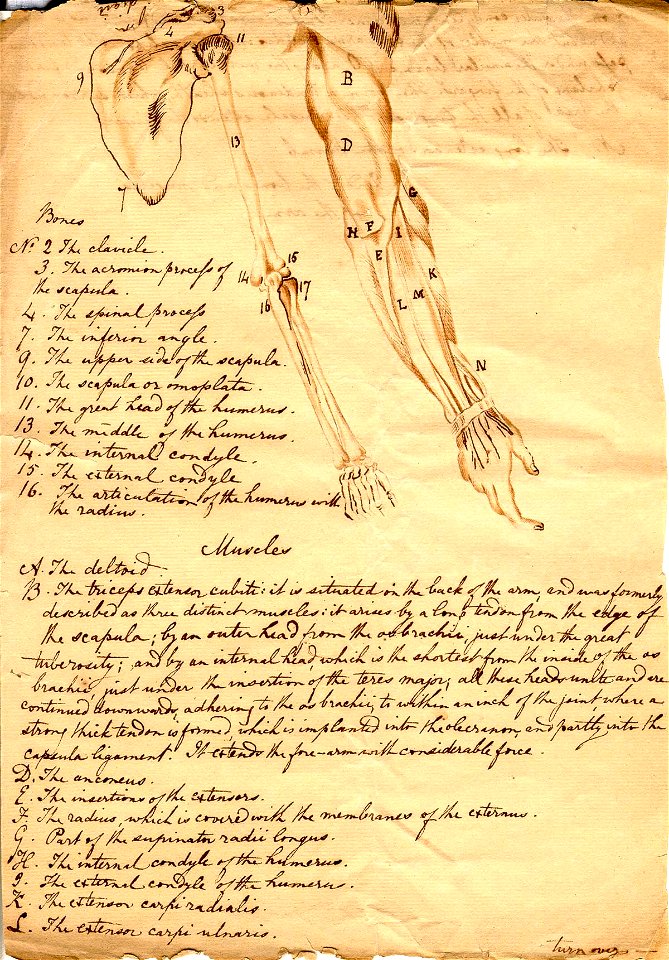 3
4
11
9
13
7
15
14
17
16
B
D
G
H
F
I
E
K
L
M
N
Bones
No. 2 The clavicle.
3. The acromion process of
the scapula.
4. The spinal process
7. The inferior angle.
9. The upper side of the scapula.
10. The scapula or omoplata.
11. The great head of the humerus.
13. The middle of the humerus.
14. The internal condyle.
15. The external condyle
16. The articulation of the humerus with
the radius.
Muscles
A. The deltoid.
B. The triceps extensor cubiti: it is situated on the back of the arm, and was formerly
described as three distinct muscles: it arises by a long tendon from the edge of
the scapula; by an outer head from the os brachii, just under the great
tuberosity; and by an internal head which is the shortest from the inside of the os
brachii, just under the insertion of the teres major; all these heads unite and are
continued downwards, adhering to the os brachii, to within an inch of the joint, where a
strong thick tendon is formed, which is implanted into the olecranon, and partly into the
capsula ligament. It extends the fore-arm with considerable force.
D. The anconeus.
E. The insertions of the extensors.
F. The radius, which is covered with the membranes of the externus.
G. Part of the supinator radii longus.
H. The internal condyle of the humerus.
I. The external condyle of the humerus.
K. The extensor carpi radialis.
L. The extensor carpi ulnaris.
turn over